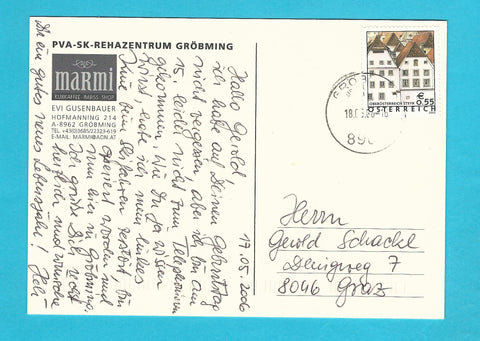 PVA-SK-REHAZENTRUM GRÖBMING
marmi
KURKAFFEE-IMBISS-SHOP
EVI GUSENBAUER
HOFMANNING 214
A-8962 GRÖBMING
TEL. +43(0)685/22323-619
E-MAIL: MARMI@AON.AT
17.05.2006
Hallo Gerold
Ich habe auf Deinen Geburtstag
nicht vergessen aber ich bin am
15. leider nicht zum Telephonieren
gekommen. Wie Du ja wissen
habe ich mein linkes
Knie beim Skifahren zerstört, bin
operiert worden und
nun hier in Gröbming.
Ich grüße Dich recht
herzlich und wünsche
Dir ein gutes neues Lebensjahr!
ÖSTERREICH
0.55
Herrn
Gerold Schackl
7
8046 Graz